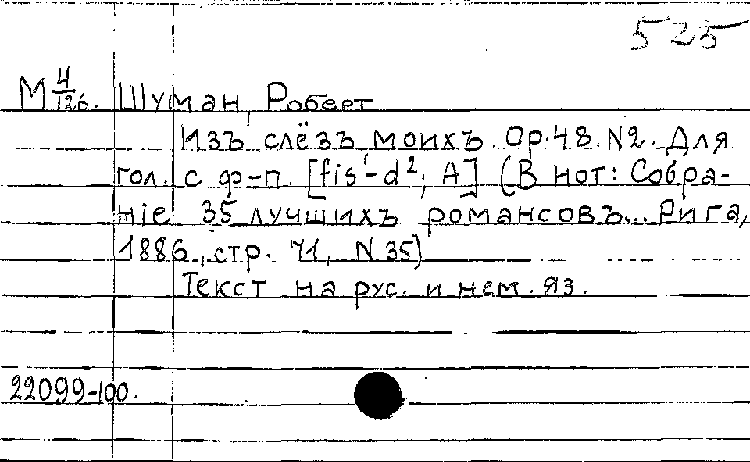 525
М 4/126. Шуман, Роберт
Изъ слёзъ моихъ. Op. 48. N2. Для
гол. с ф-п. [fis¹-d², A] (В нот: Собра-
нiе 35 лучших романсовъ... Рига,
1886, стр. 71, N 35)
Текст на рус. и нем. яз.
22099-100.